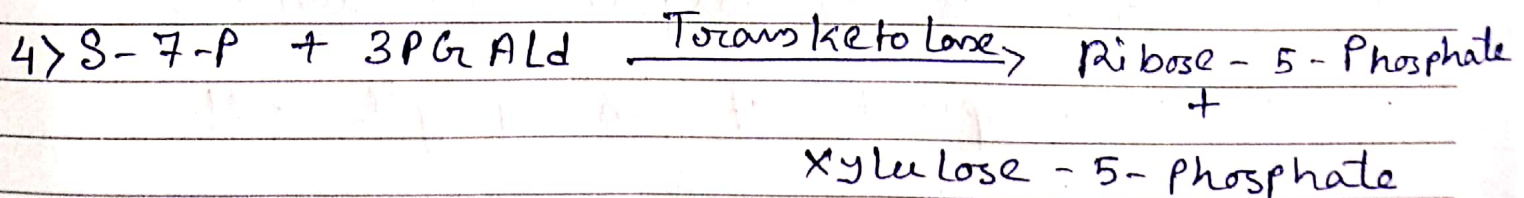 4> S-7-P + 3PGALd Transketolase> Ribose - 5 - Phosphate
+
Xylulose - 5 - Phosphate